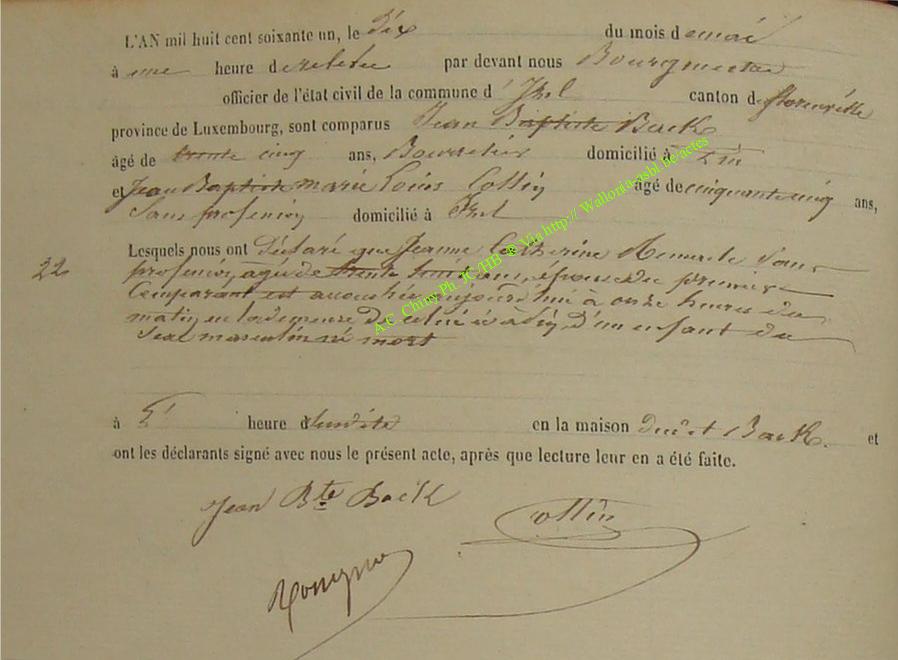 L'AN mil huit cent soixante un, le dix du mois de mai
à une heure de relevée par devant nous Bourgmestre
officier de l'état civil de la commune d'Izel canton de florenville
province de Luxembourg, sont comparus Jean Baptiste Back
âgé de trente cinq ans, Bourrelier domicilié à
et Jean Baptiste marie Louis Collin âgé de cinquante cinq ans,
Sans profession domicilié à Izel
22 Lesquels nous ont déclaré que Jeanne Catherine Sans
profession, agée de trente huit ans, épouse du premier
Comparant est accouchée aujourd'hui à onze heures du
matin en la demeure de celui ci d'un enfant du
Sexe masculin né mort
à heure susdite en la maison dudit Back. et
ont les déclarants signé avec nous le présent acte, après que lecture leur en a été faite.
Jean Bte Back
Collin
A.C. Chiny Ph. JC/HB ® Via http:// Wallonia-asbl.be/actes